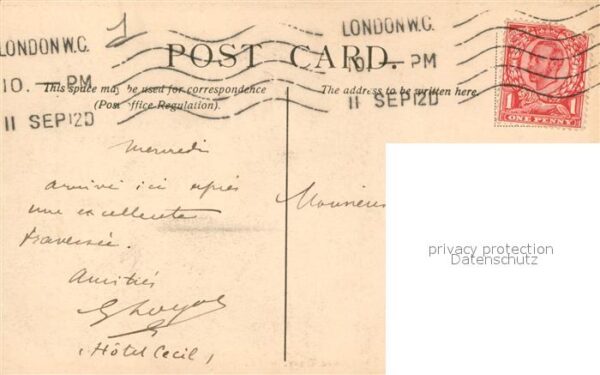 LONDON W.C.
10. — PM
11 SEP 12D
LONDON W.C.
10. — PM
11 SEP 12D
POST CARD.
This space may be used for correspondence
(Post Office Regulation).
The address to be written here.
1 1
ONE PENNY
Mercredi
arrivé ici après
une excellente
traversée.
Amitiés
(Hôtel Cecil)
privacy protection
Datenschutz